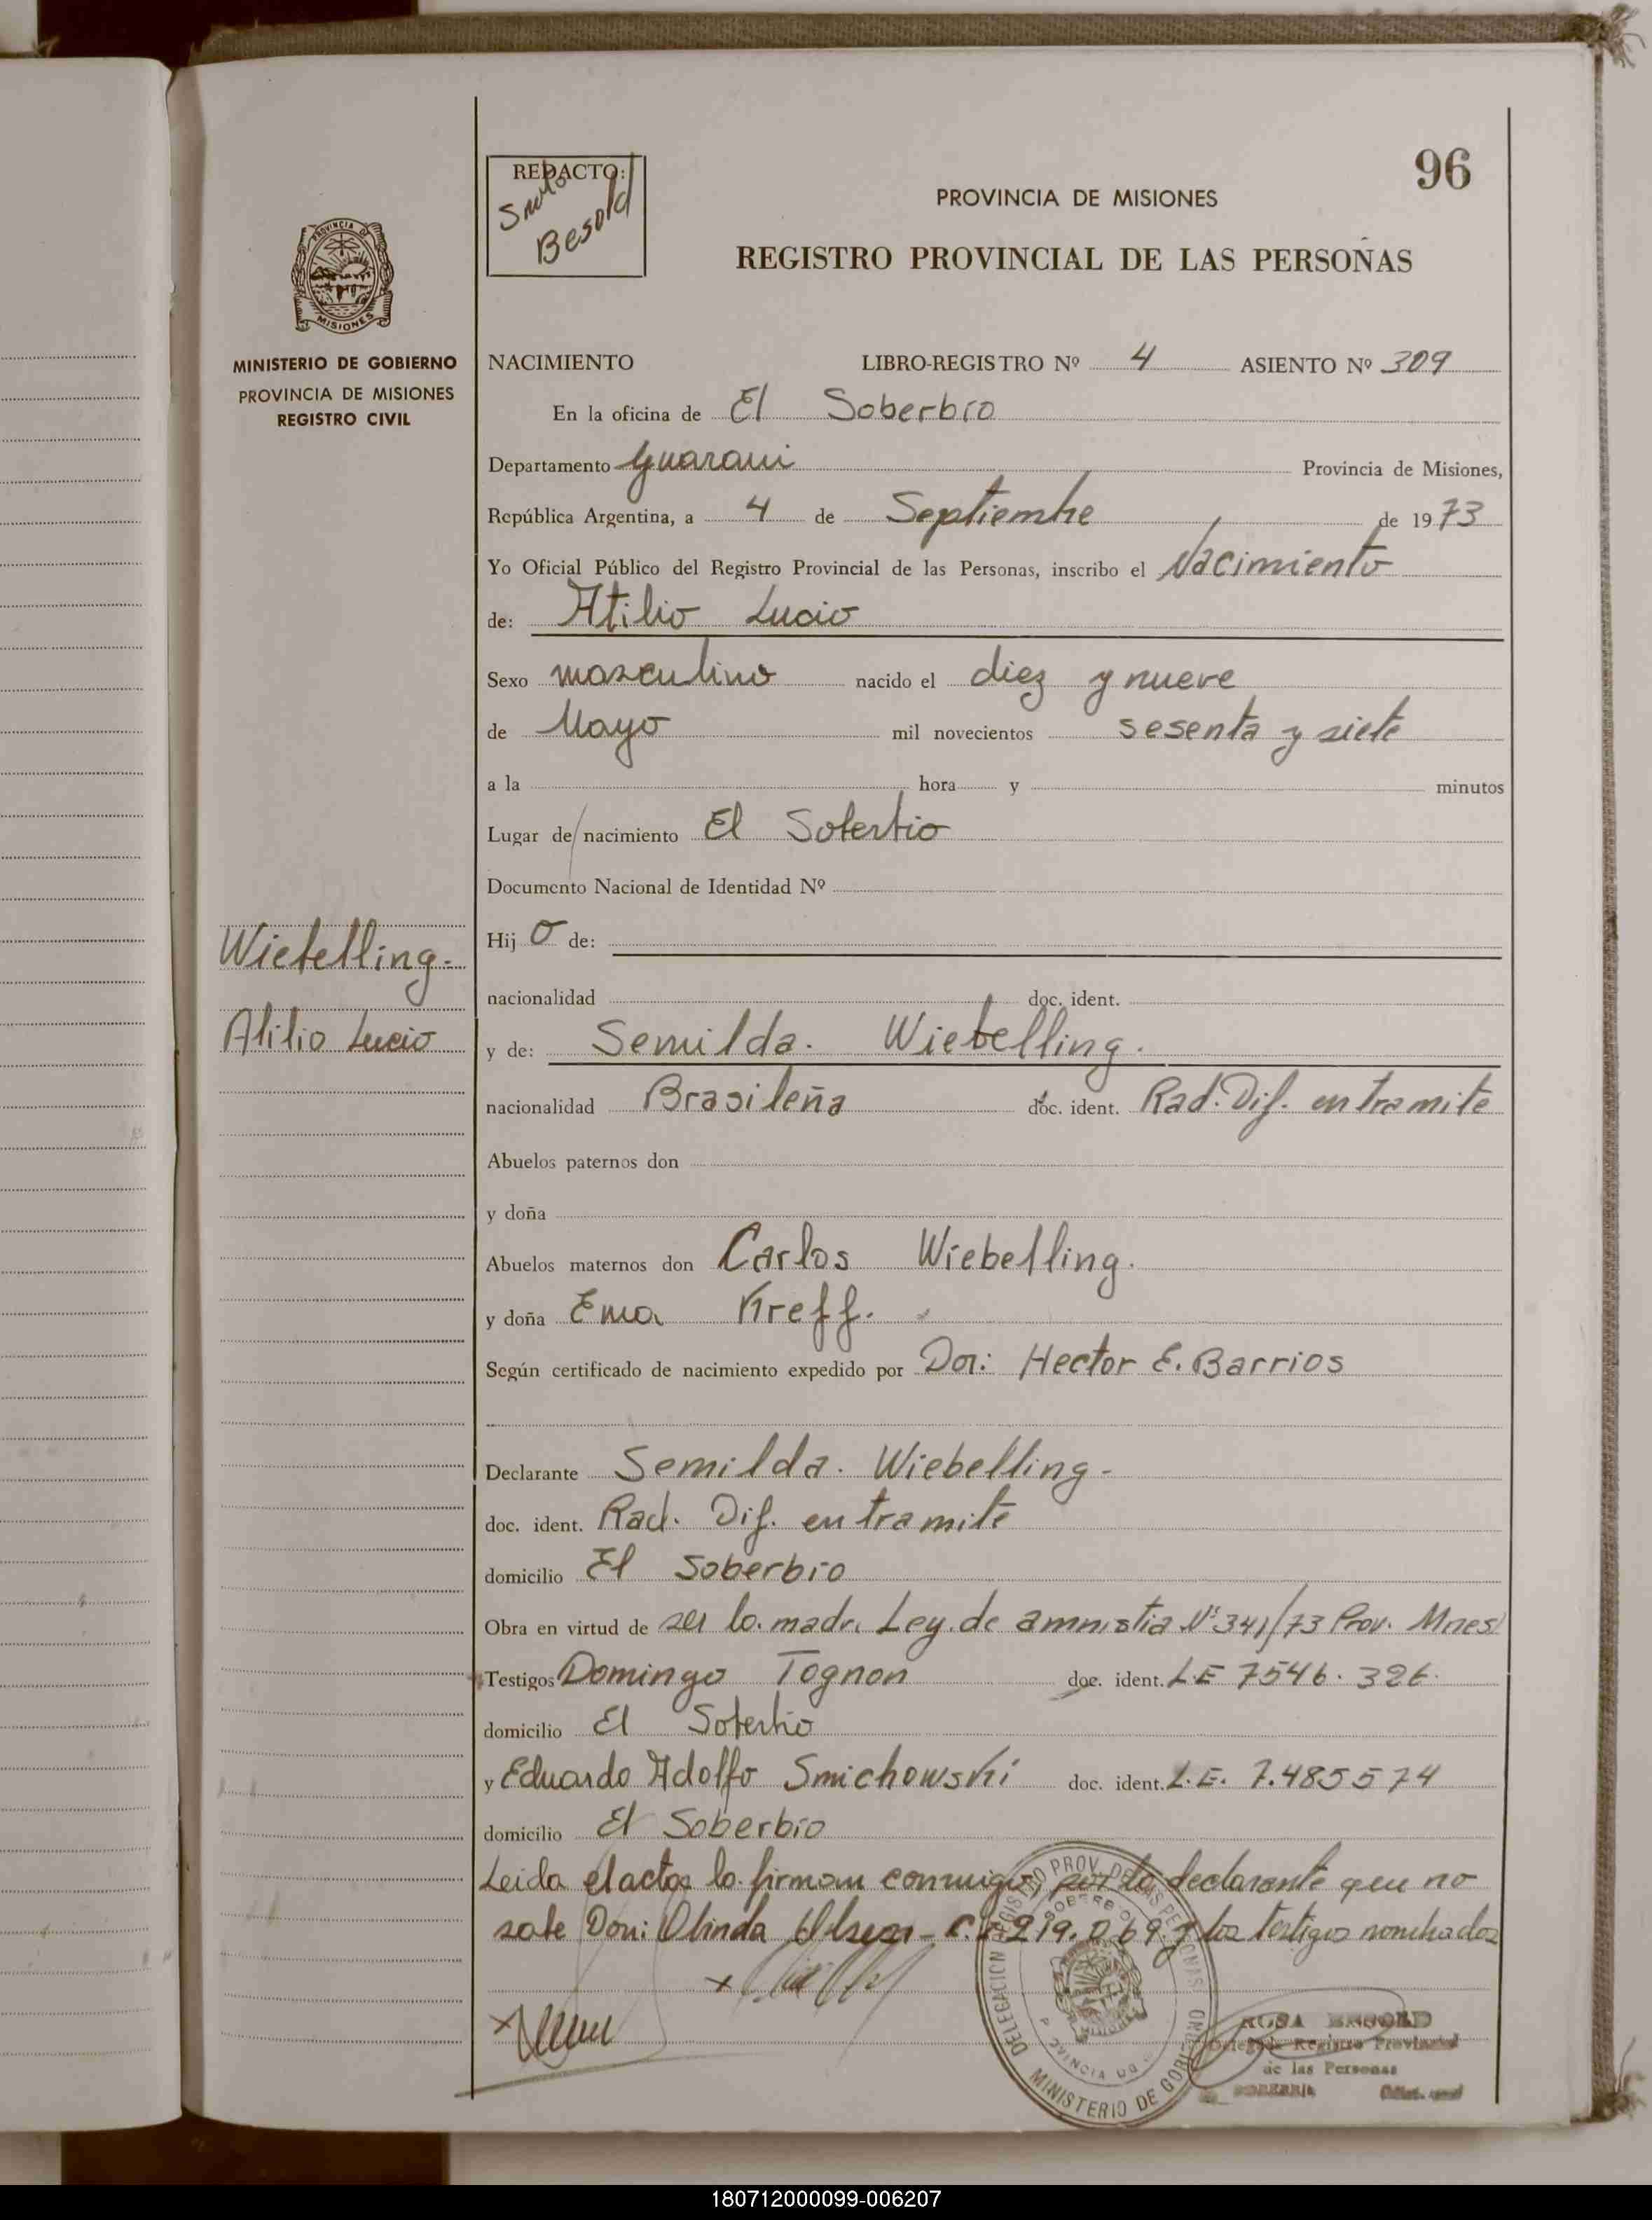 96
REDACTO:
Besold
PROVINCIA DE MISIONES
REGISTRO PROVINCIAL DE LAS PERSONAS
PROVINCIA DE
MISIONES
MINISTERIO DE GOBIERNO
PROVINCIA DE MISIONES
REGISTRO CIVIL
NACIMIENTO LIBRO-REGISTRO Nº 4 ASIENTO Nº 309
En la oficina de El Soberbio
Departamento Guarani Provincia de Misiones,
República Argentina, a 4 de Septiembre de 1973
Yo Oficial Público del Registro Provincial de las Personas, inscribo el Nacimiento
de: Atilio Lucio
Sexo masculino nacido el diez y nueve
de Mayo mil novecientos sesenta y siete
a la hora y minutos
Lugar de nacimiento El Soberbio
Documento Nacional de Identidad Nº
Wiebelling.
Hijo de:
nacionalidad doc. ident.
Atilio Lucio
y de: Semilda. Wiebelling.
nacionalidad Brasileña doc. ident. Rad. Dif. en tramite
Abuelos paternos don
y doña
Abuelos maternos don Carlos Wiebelling.
y doña Ema Kreff.
Según certificado de nacimiento expedido por Don: Hector E. Barrios
Declarante Semilda. Wiebelling-
doc. ident. Rad. Dif. en tramite
domicilio El Soberbio
Obra en virtud de ser la madre Ley de amnistia Nº 341/73 Prov. Mnes
Testigos Domingo Tognon doc. ident. L.E 7546.326.
domicilio El Soberbio
y Eduardo Adolfo Smichowski doc. ident. L.E. 7.485574
domicilio El Soberbio
Leida el acta la firman conmigo, por la declarante que no
sabe Don: Olinda C.I 219.069 y los testigos nombrados
DELEGACION REGISTRO PROV. DE LAS PERSONAS
MINISTERIO DE GOBIERNO
ROSA BESOLD
Delegada Registro Provincial
de las Personas
180712000099-006207